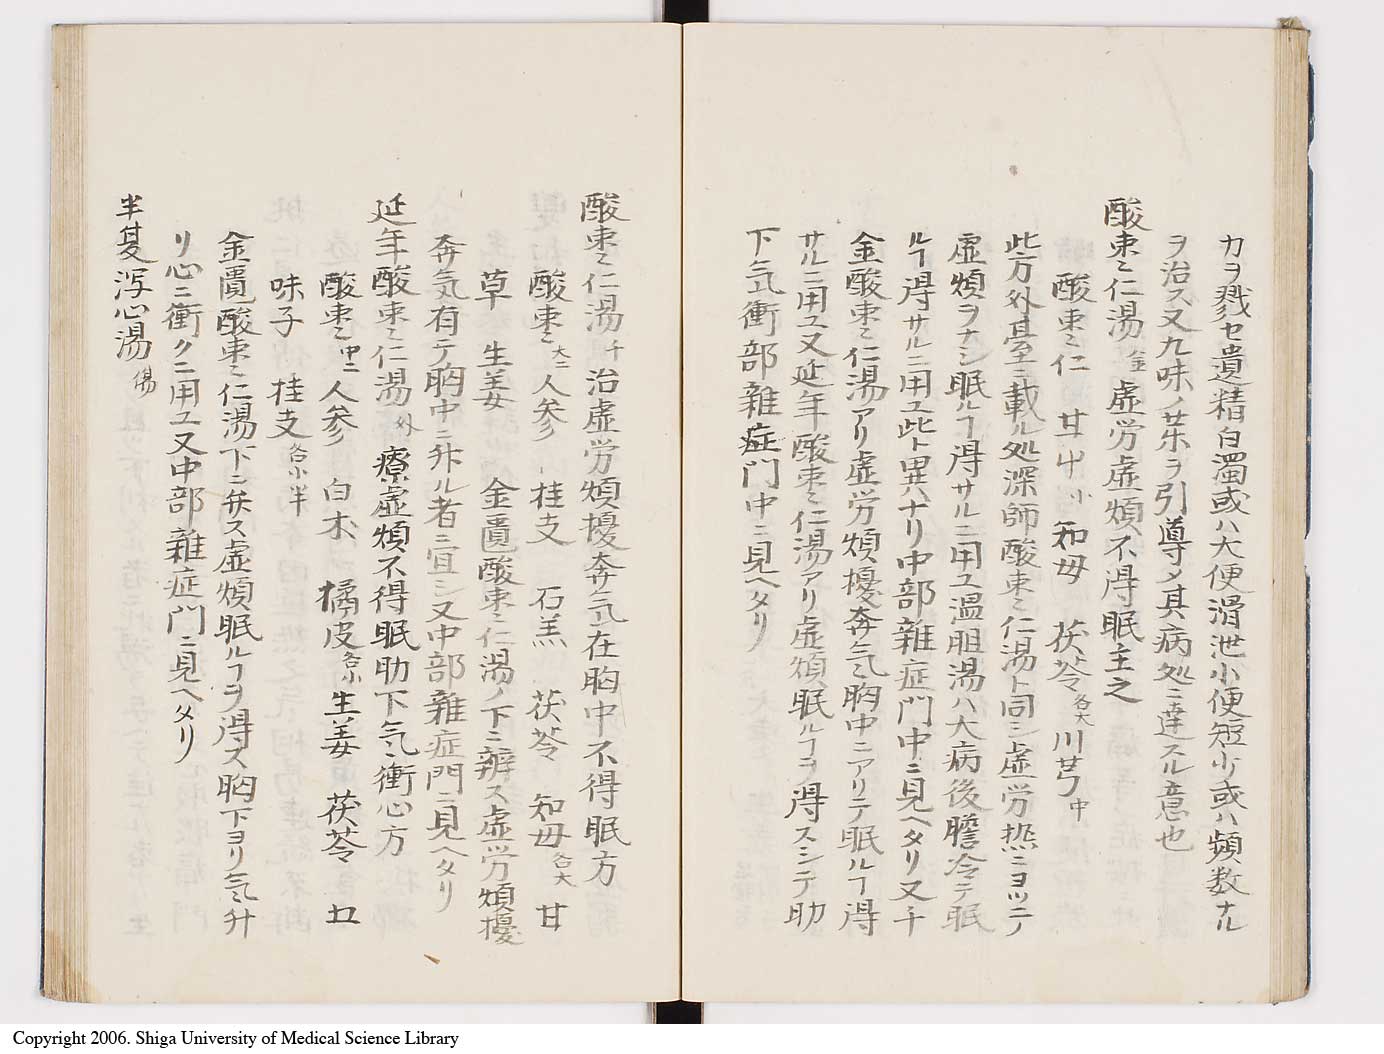 カヲ戮セ遺精白濁或ハ大便滑泄小便短少或ハ頻数ナル
ヲ治ス又九味ノ茱ヲ引導メ其病処ニ達スル意也
酸棗仁湯金虚労虚煩不得眠主之
酸棗仁 甘中小 知母 茯苓各大川芎中
此方外臺ニ載ル処深師酸棗仁湯ト同シ虚労熱ニヨツテ
虚煩ヲナシ眠ルヿ得サルニ用ユ温胆湯ハ大病後膽冷テ眠
ルヿ得サルニ用ユ此ト異ハナリ中部雜症門中ニ見ヘタリ又千
金酸棗仁湯アリ虚労煩擾奔氣胸中ニアリテ眠ルヿ得
サルニ用ユ又延年酸棗仁湯アリ虚煩眠ルヿヲ得スシテ助
下気衝部雜症門中ニ見ヘタリ
酸棗仁湯千治虚労煩擾奔気在胸中不得眠方
酸棗大二人参 桂支 石羔 茯苓 知母各大 甘
草 生姜 金匱酸棗仁湯ノ下ニ辨ス虚労煩擾
奔気有テ胸中ニ升ル者ニ宜シ又中部雜症門ニ見ヘタリ
延年酸棗仁湯外療虚煩不得眠助下気衝心方
酸棗中二人参 白朮 橘皮各小生姜 茯苓 五
味子 桂支各小半
金匱酸棗仁湯下ニ弁ス虚煩眠ルヿヲ得ス胸下ヨリ気升
リ心ニ衝クニ用ユ又中部雜症門ニ見ヘタリ
半夏泻心湯傷
Copyright 2006. Shiga University of Medical Science Library